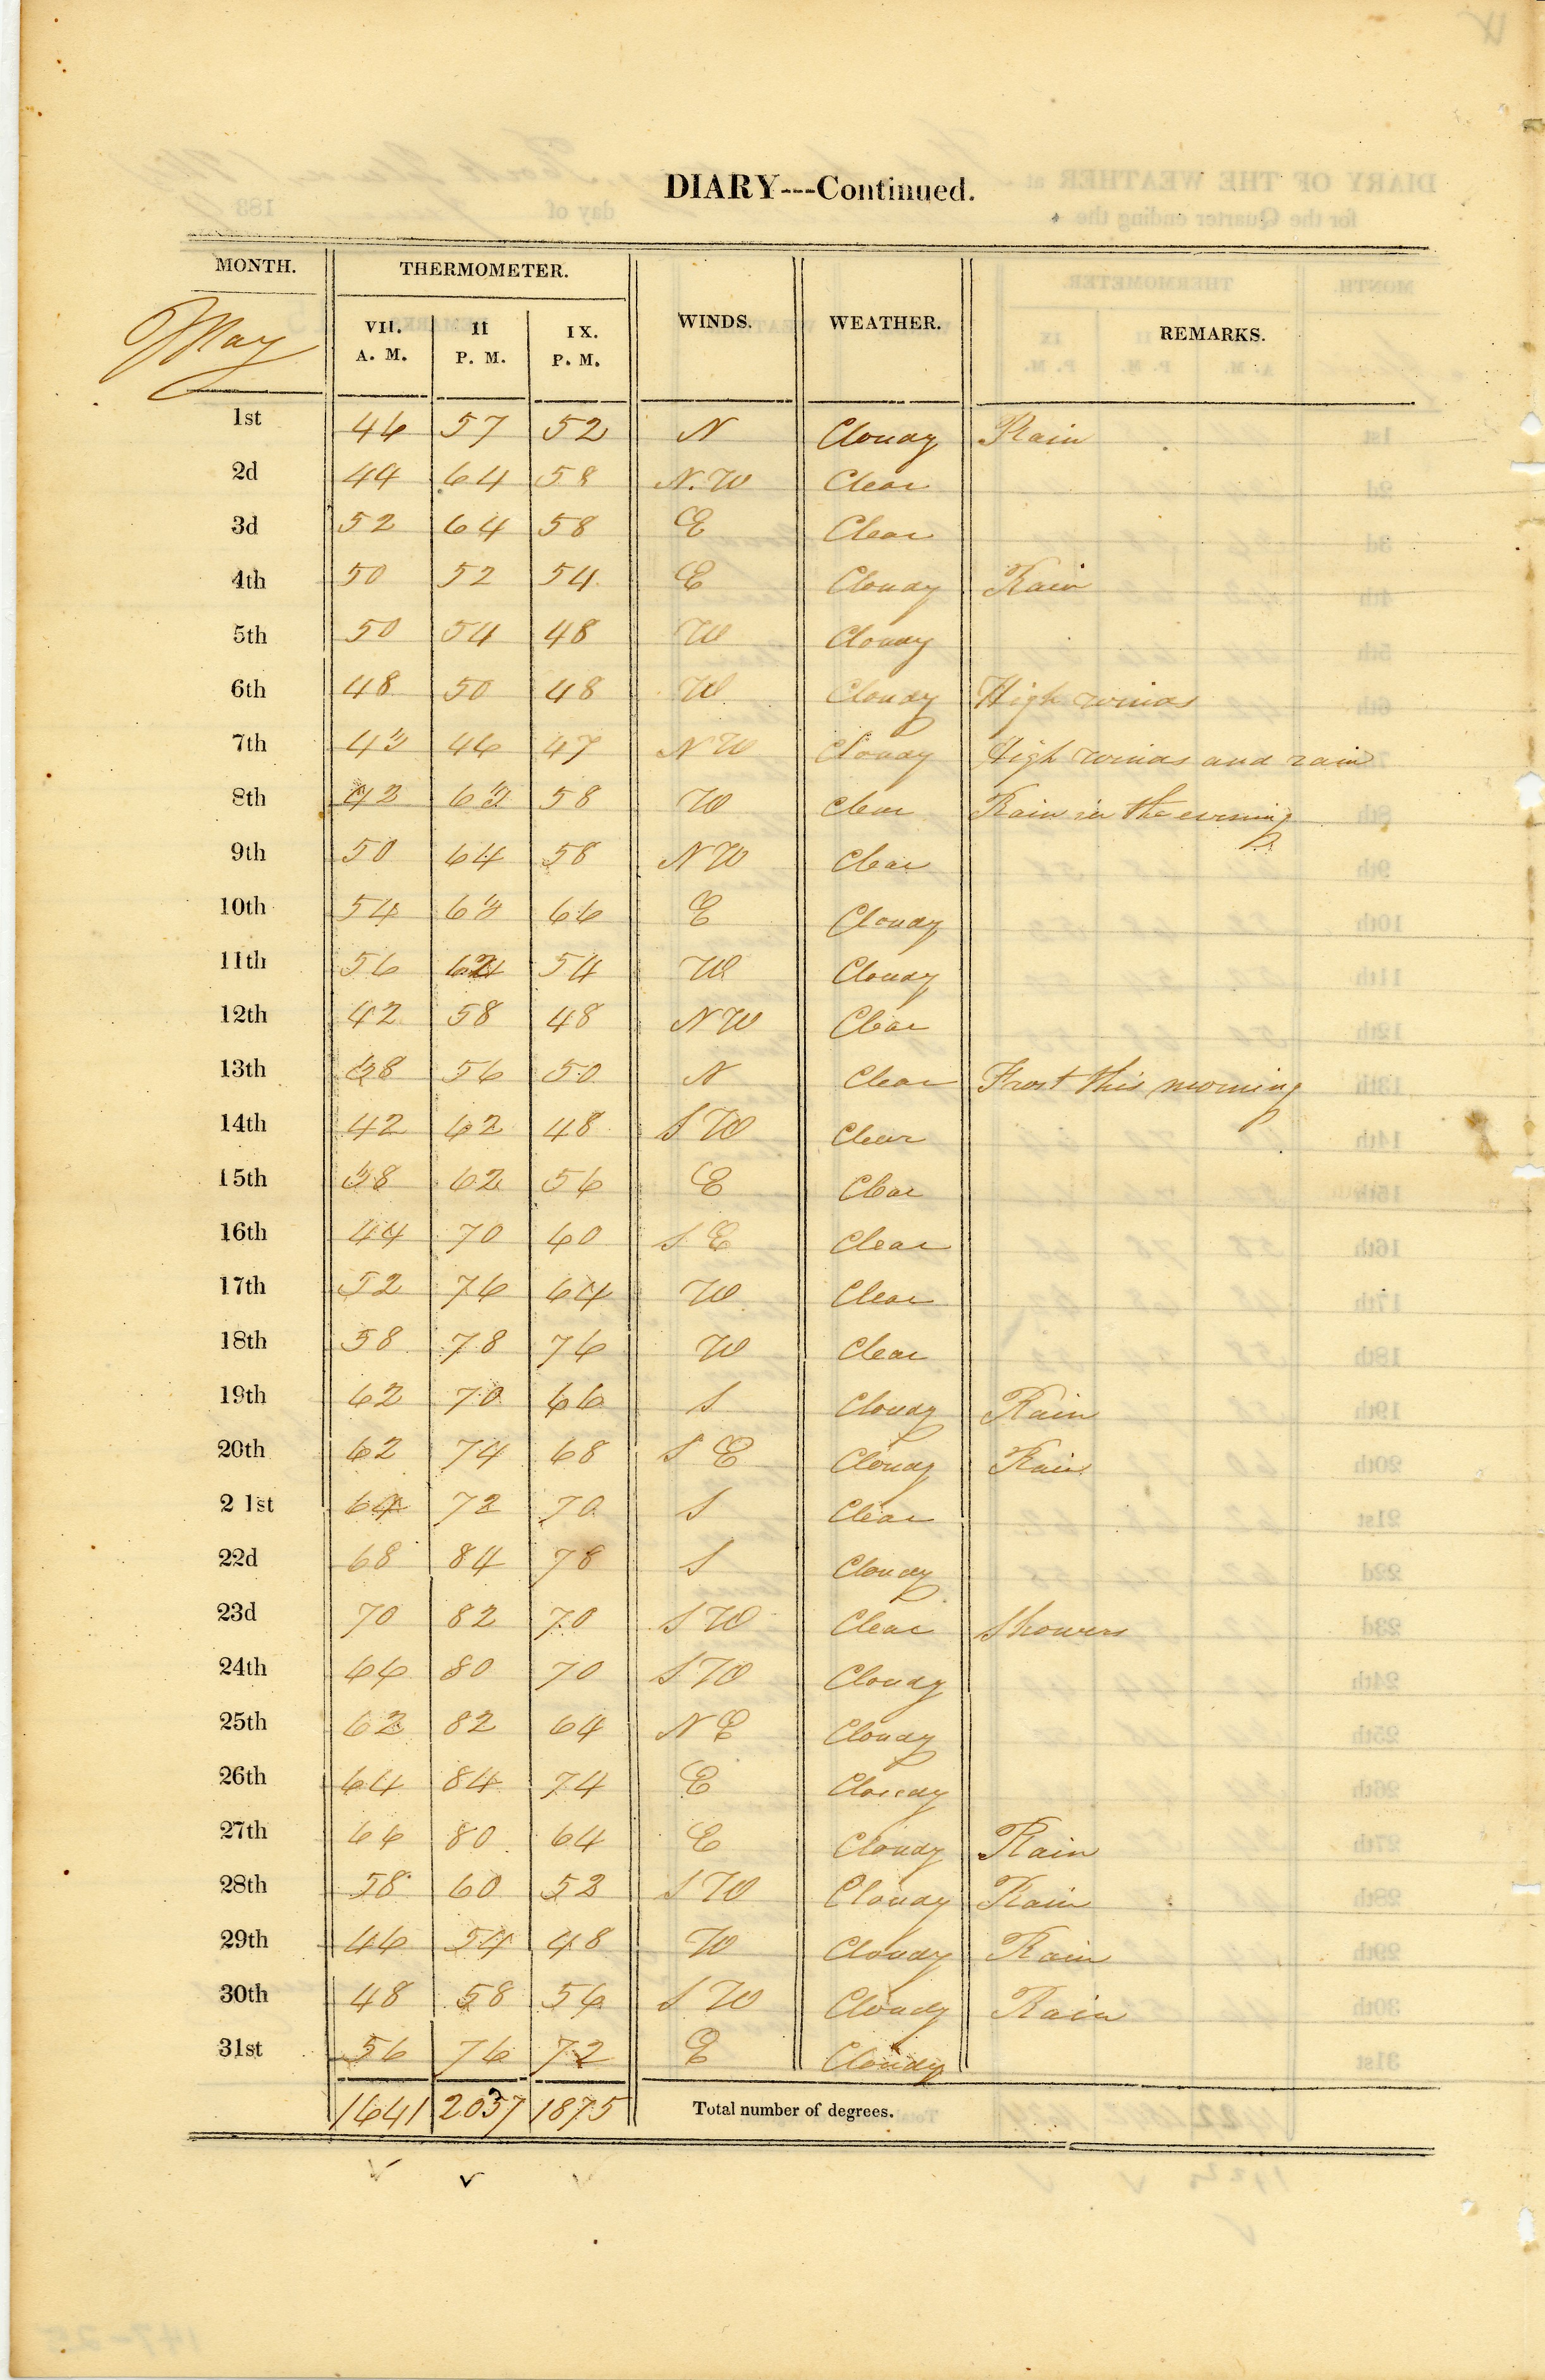 DIARY---Continued.
MONTH. THERMOMETER. WINDS. WEATHER. REMARKS.
May VII. A. M. II P. M. IX. P. M.
1st 46 57 52 N Cloudy Rain
2d 44 64 58 N.W Clear
3d 52 64 58 E Clear
4th 50 52 54 E Cloudy Rain
5th 50 54 48 W Cloudy
6th 48 50 48 W Cloudy High winds
7th 43 46 47 N W Cloudy High winds and rain
8th 42 63 58 W Clear Rain in the evening
9th 50 64 58 N W Clear
10th 54 63 66 E Cloudy
11th 56 62 54 W Cloudy
12th 42 58 48 N W Clear
13th 38 56 50 N Clear Frost this morning
14th 42 62 48 S W Clear
15th 38 62 56 E Clear
16th 44 70 60 S E Clear
17th 52 76 64 W Clear
18th 58 78 76 W Clear
19th 62 70 66 S Cloudy Rain
20th 62 74 68 S E Cloudy Rain
21st 64 72 70 S Clear
22d 68 84 78 S Cloudy
23d 70 82 70 S W Clear Showers
24th 66 80 70 S W Cloudy
25th 62 82 64 N E Cloudy
26th 64 84 74 E Cloudy
27th 66 80 64 E Cloudy Rain
28th 58 60 52 S W Cloudy Rain
29th 46 54 48 W Cloudy Rain
30th 48 58 56 S W Cloudy Rain
31st 56 76 72 E Cloudy
1641 2037 1875 Total number of degrees.